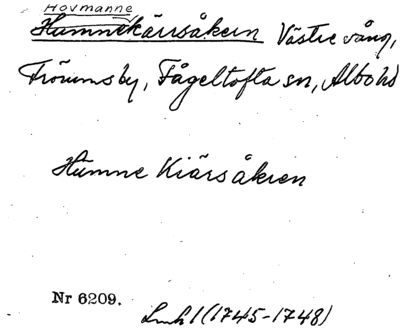 Hovmanne
Humnekärrsåkern Västre vång,
Tröumsby, Fågeltofta sn, Albo hd
Humne Kiärs åkren
Nr 6209.
Lmh 1 (1745-1748)